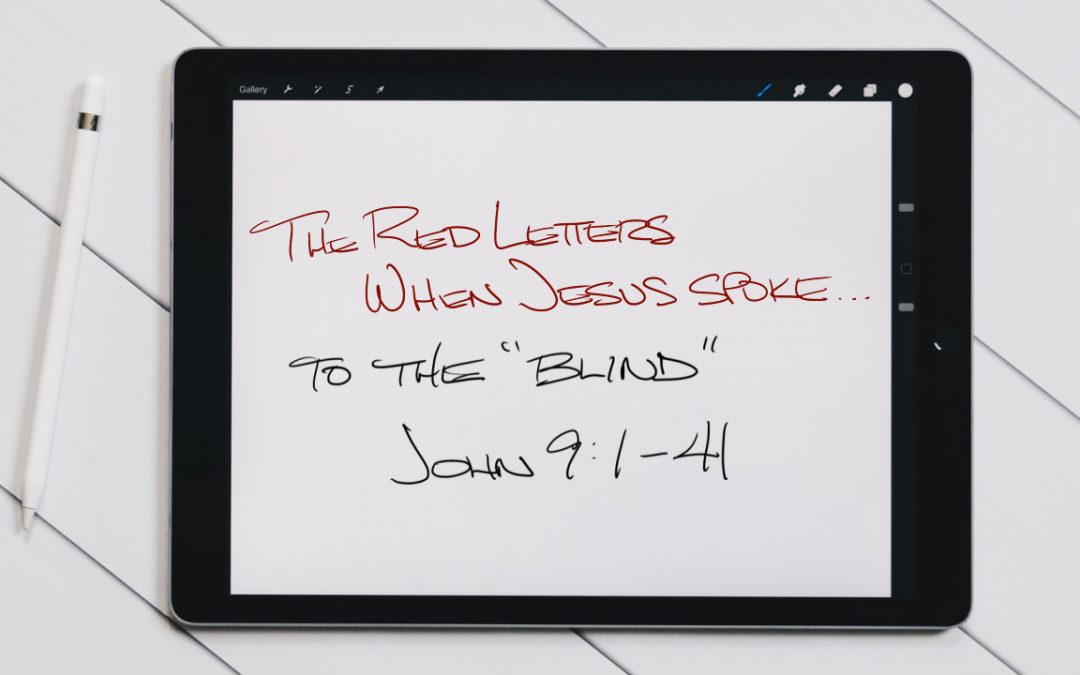 Gallery
The Red Letters
When Jesus spoke...
to the "Blind"
John 9:1-41